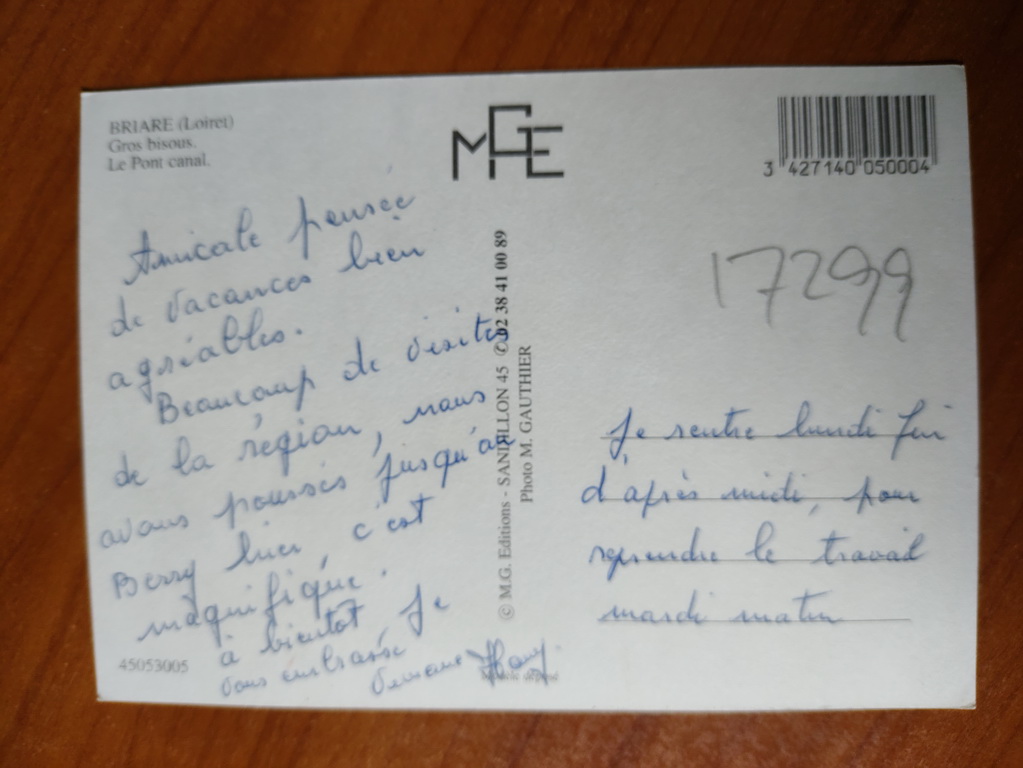 BRIARE (Loiret)
Gros bisous.
Le Pont canal.
MGE
3 427140 050004
Amicale pensée
de vacances bien
agréables.
Beaucoup de visites
de la région, nous
avons poussés jusqu'au
Berry hier, c'est
magnifique.
à bientot, Je
vous embrasse
45053005
© M.G. Editions - SANDILLON 45 ✆ 02 38 41 00 89
Photo M. GAUTHIER
17299
Je rentre lundi fin
d'après midi, pour
reprendre le travail
mardi matin